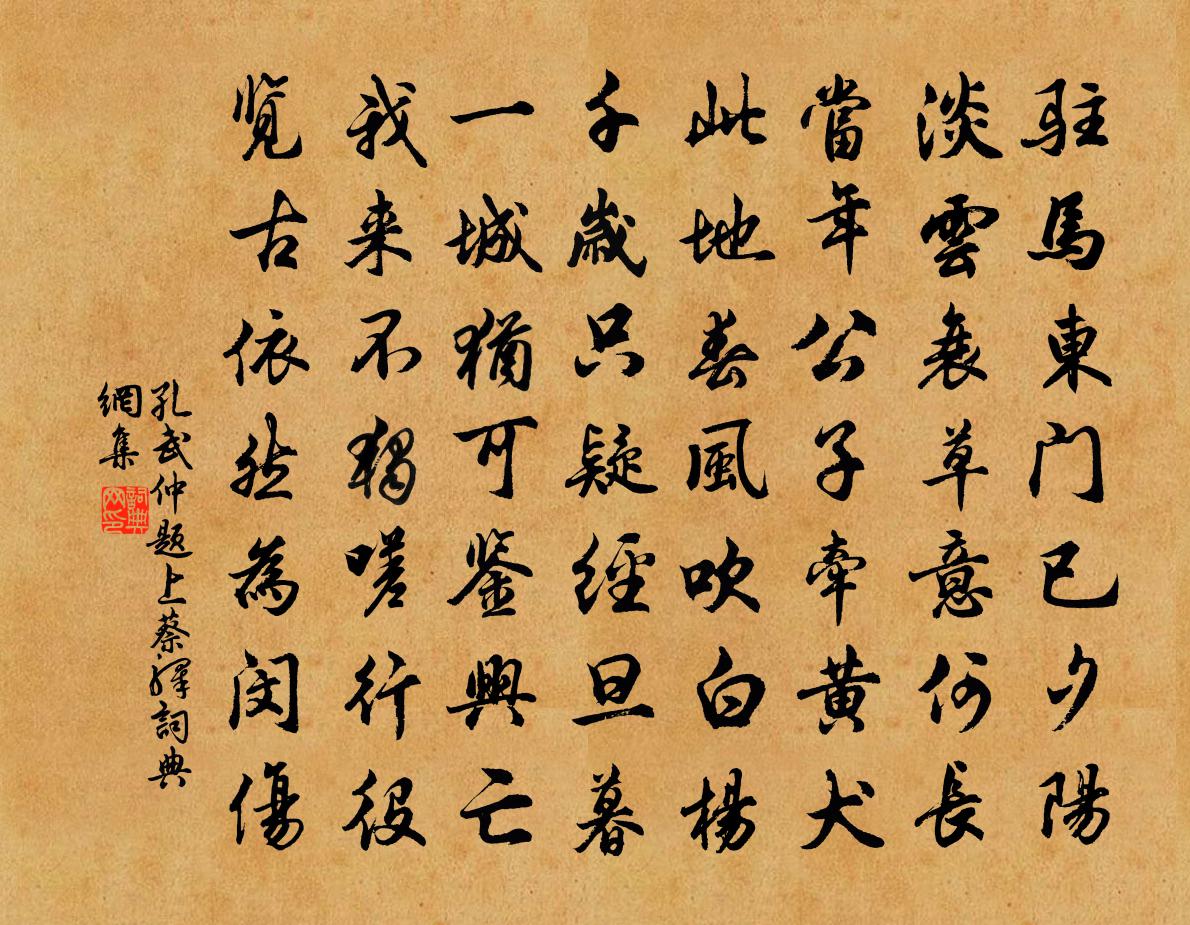 駐馬東门已夕陽
淡雲衰草意何長
當年公子牽黃犬
此地春風吹白楊
千歲只疑經旦暮
一城猶可鉴興亡
我来不独嗟行役
览古依然為闵傷
孔武仲题上蔡驛詞典
網集
詞典
网印